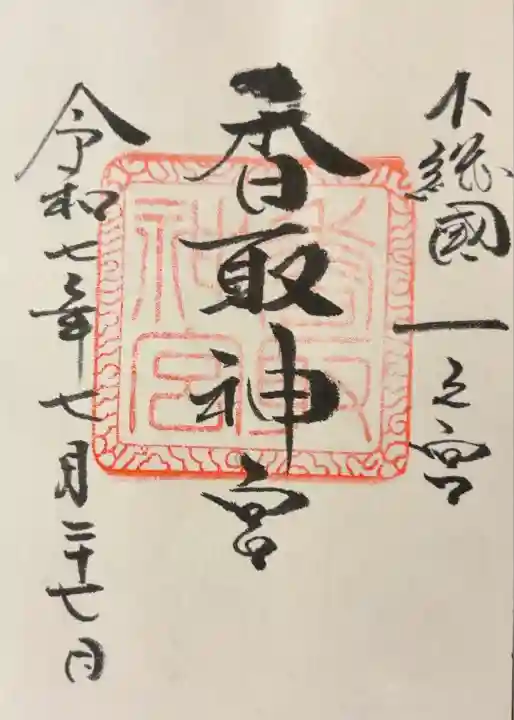 下総國一之宮
香取神宮
香取神宮
令和七年七月二十七日